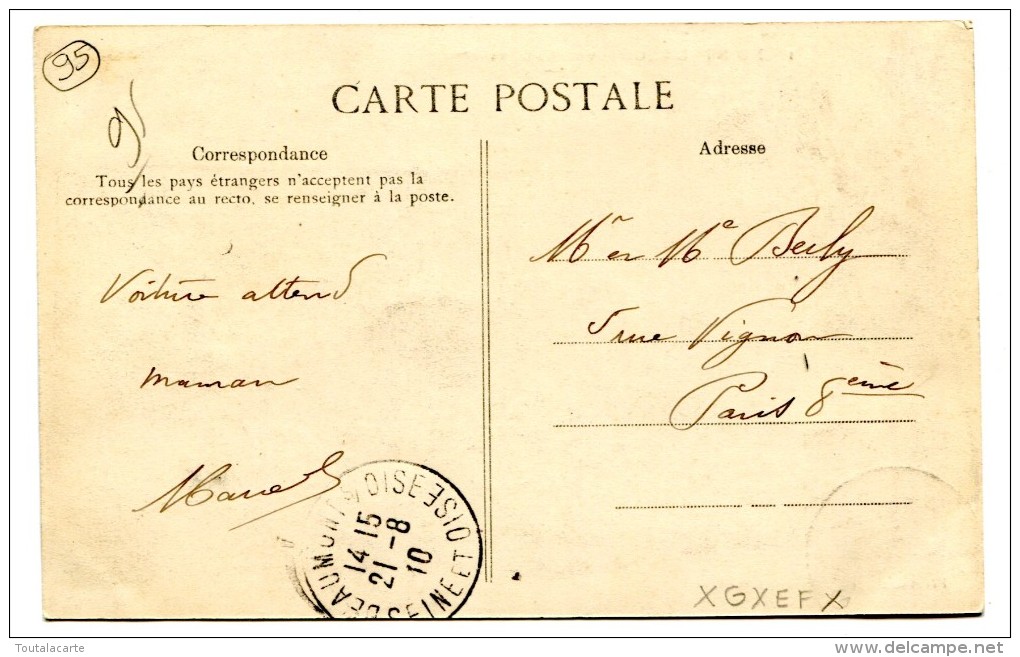 95
95
CARTE POSTALE
Correspondance
Tous les pays étrangers n'acceptent pas la
correspondance au recto, se renseigner à la poste.
Voiture attend
maman
Marcel
Adresse
Mr et Me Berly
5 rue Vignon
Paris 8ème
BEAUMONT S/ OISE
14 15
21 - 8
10
SEINE ET OISE
XGXEFX
Toutalacarte
www.delcampe.net